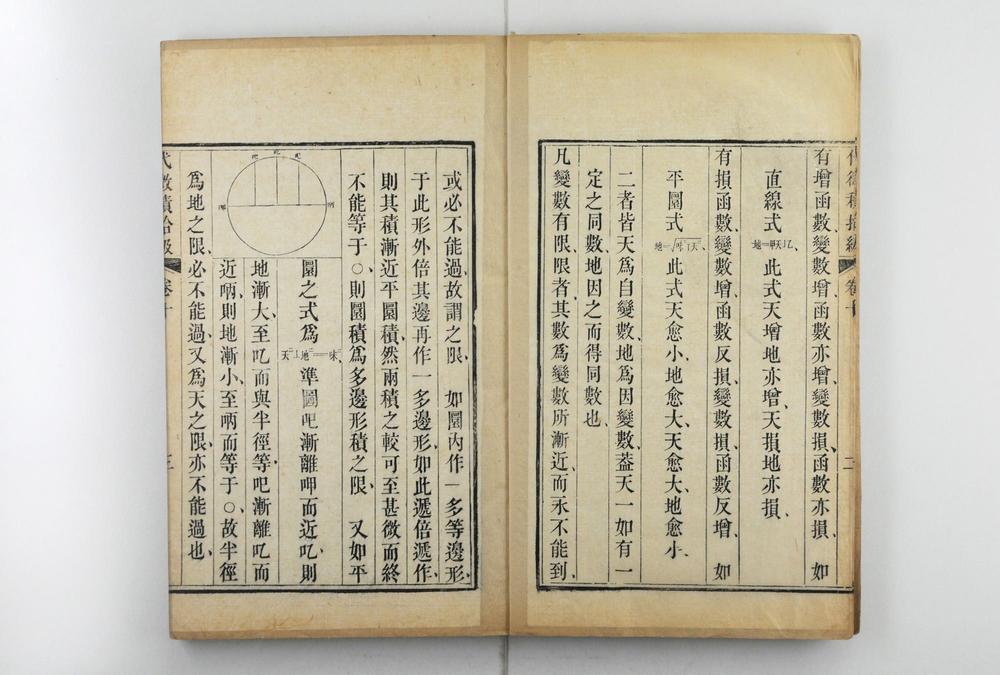 代微積拾級 卷十 二
有增函數變數增函數亦增變數損函數亦損 如
直線式 地＝甲天⊥乙 此式天增地亦增天損地亦損
有損函數變數增函數反損變數損函數反增 如
平圜式 此式天愈小地愈大天愈大地愈小
二者皆天爲自變數地爲因變數葢天一如有一
定之同數地因之而得同數也
凡變數有限限者其數爲變數所漸近而永不能到
或必不能過故謂之限 如圜內作一多等邊形
于此形外倍其邊再作一多邊形如此遞倍遞作
則其積漸近平圜積然兩積之較可至甚微而終
不能等于〇則圜積爲多邊形積之限 又如平
圜之式爲 準圖吧漸離呷而近叱則
地漸大至叱而與半徑等吧漸離叱而
近㖤則地漸小至㖤而等于〇故半徑
爲地之限必不能過又爲天之限亦不能過也
代微積拾級 卷十 三